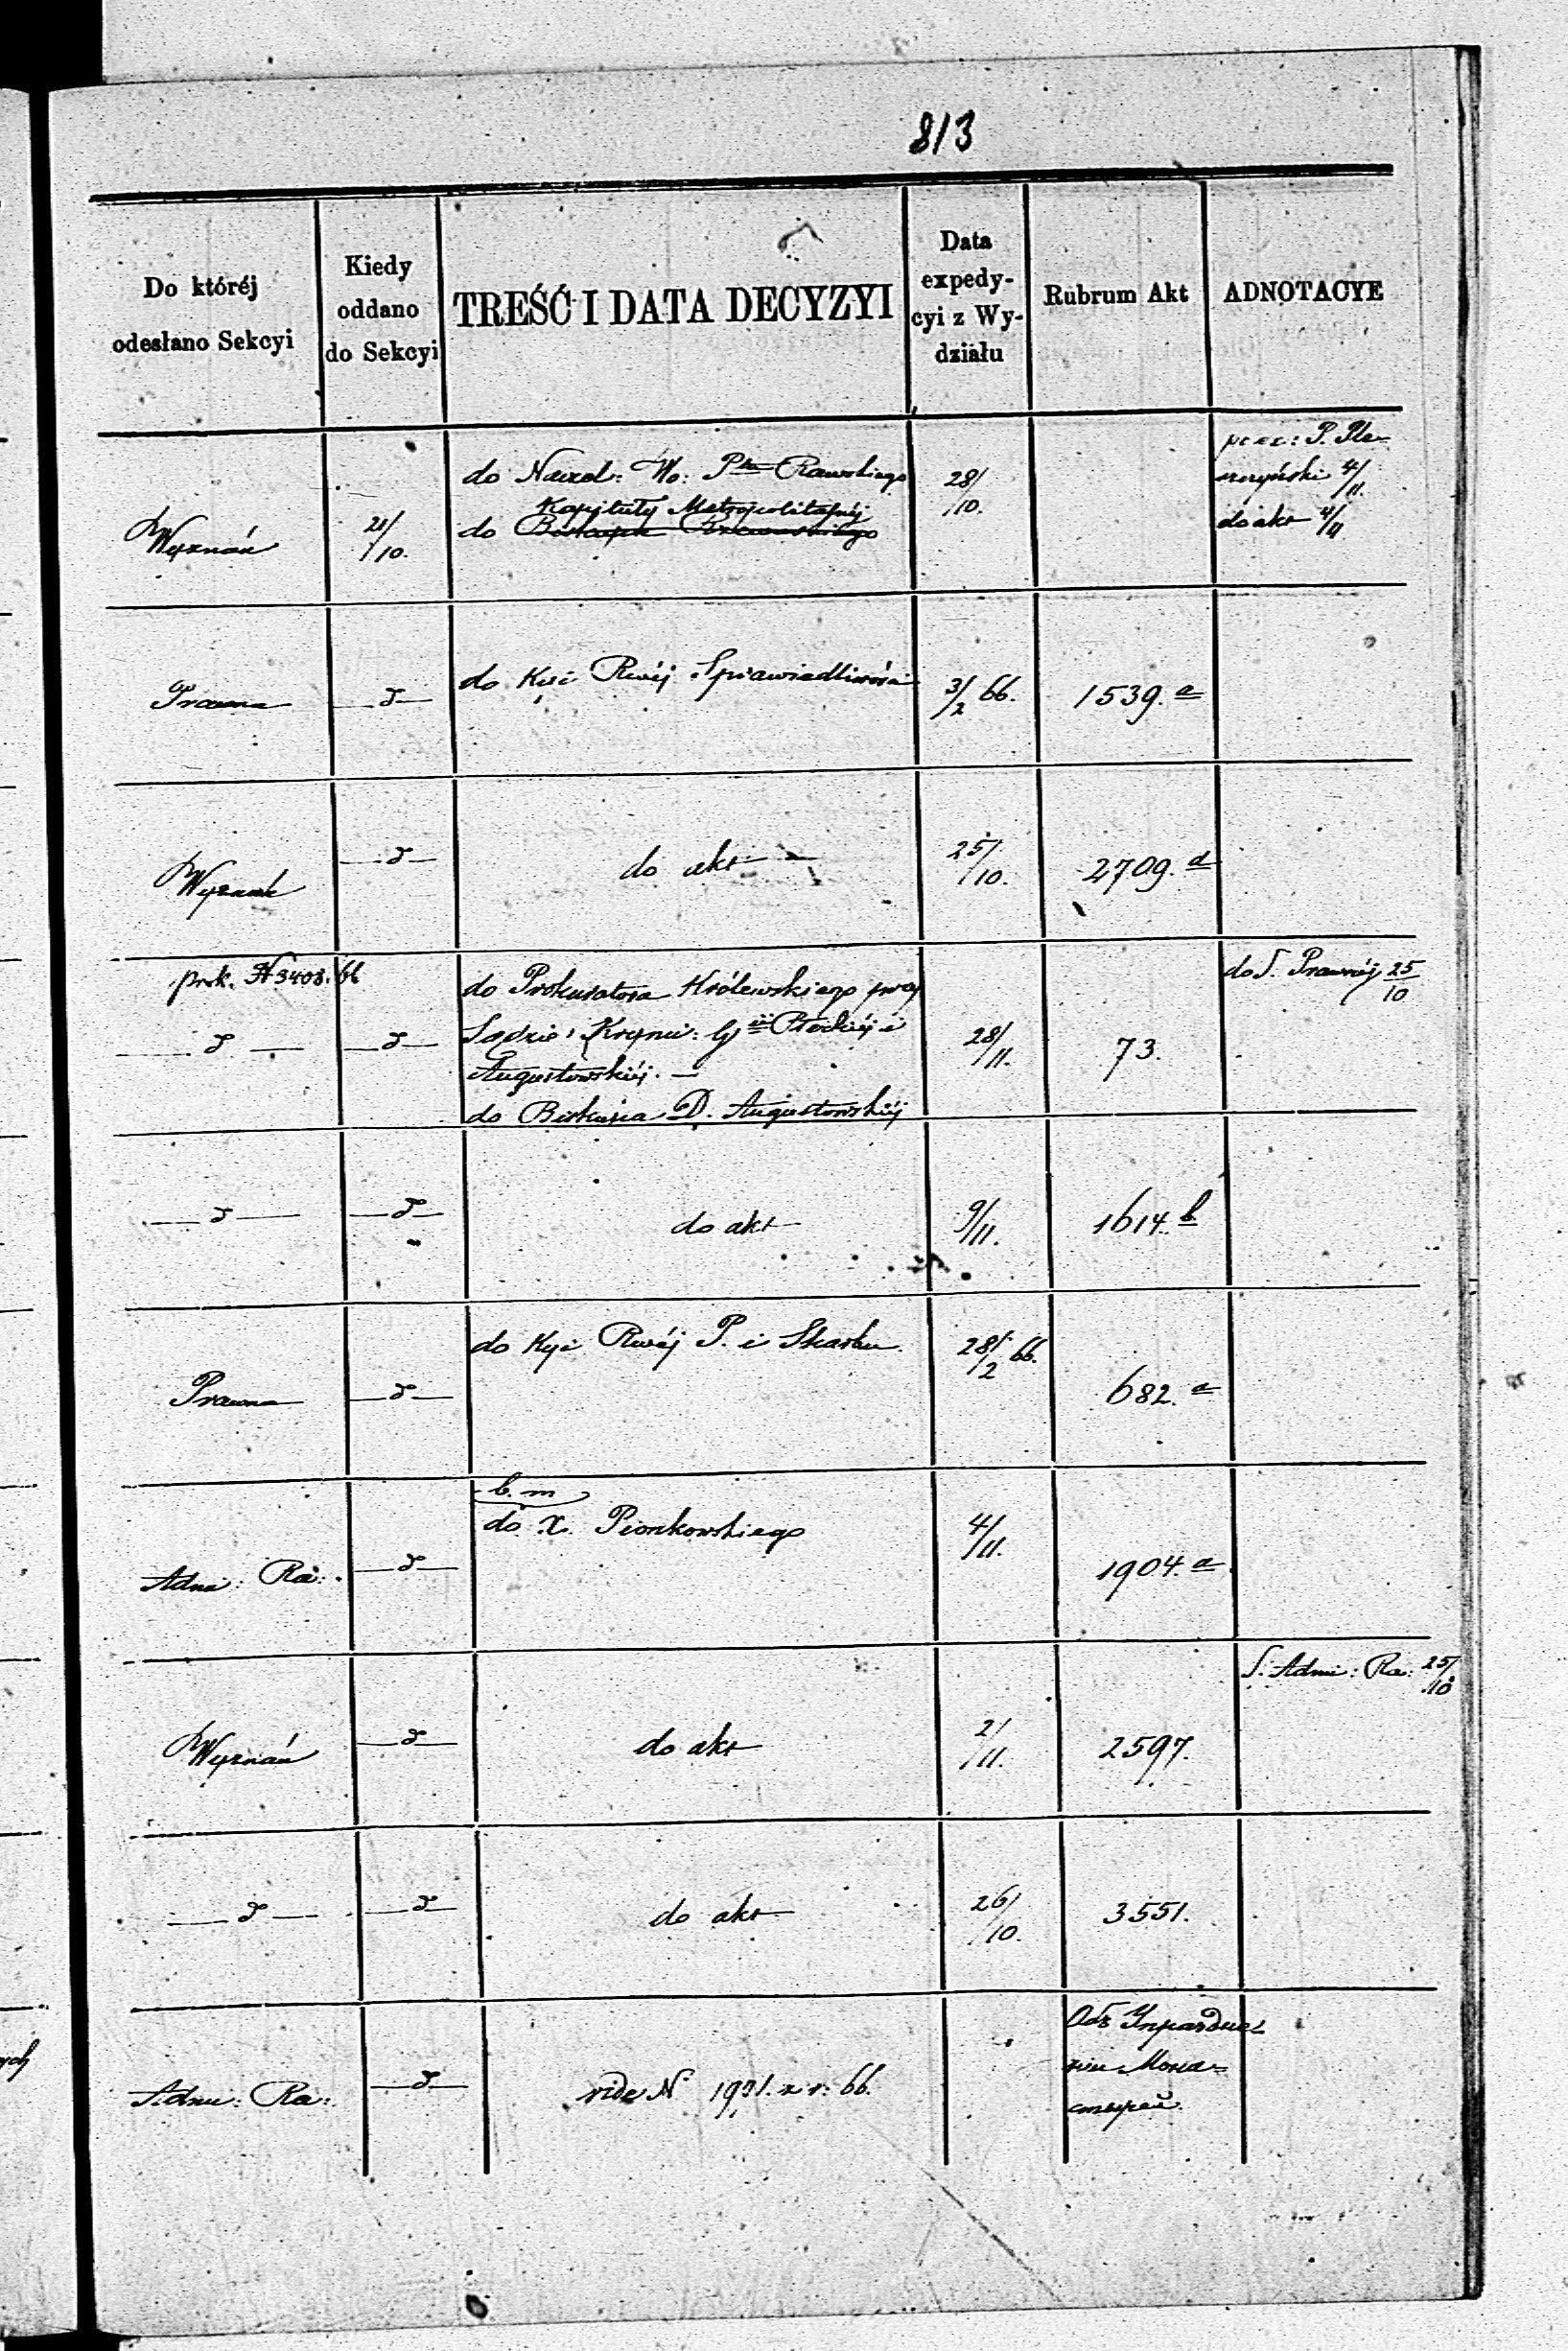 813
Do któréj
odesłano Sekcyi
Kiedy
oddano
do Sekcyi
TREŚĆ I DATA DECYZYI
Data
expedy-
cyi z Wy-
działu
Rubrum Akt
ADNOTACYE
Wyznań
21/10.
do Naczel: Wo: Ptu Rawskiego
Kapituły Metropolitalnéj
do Biskupa Rzewuskiego
28/10.
P. Ple-
szczyński 4/11.
do akt 4/11
Prawna
d
do Kyi Rwéj Sprawiedliwości
3/2 66.
1539. a
Wyznań
d
do akt
25/10.
2709. d
prk. N 3408. 66
d
d
do Prokuratora Królewskiego przy
Sądzie Krymi: Gii Płockiéj i
Augustowskiéj. —
do Biskupa D. Augustowskiéj
28/11.
73.
do S. Prawnéj 25/10
d
d
do akt
9/11.
1614. b
Prawna
d
do Kyi Rwéj P. i Skarbu.
28/2 66.
682. a
Admi: Ra:
d
b. m
do X. Pionkowskiego
4/11.
1904. a
Wyznań
d
do akt
2/11.
2597.
S. Admi: Ra: 25/10
d
d
do akt
26/10.
3551.
Admi: Ra:
d
vide N 1931. z r: 66.
Объ Упраздне-
нiи Мона-
стырей.